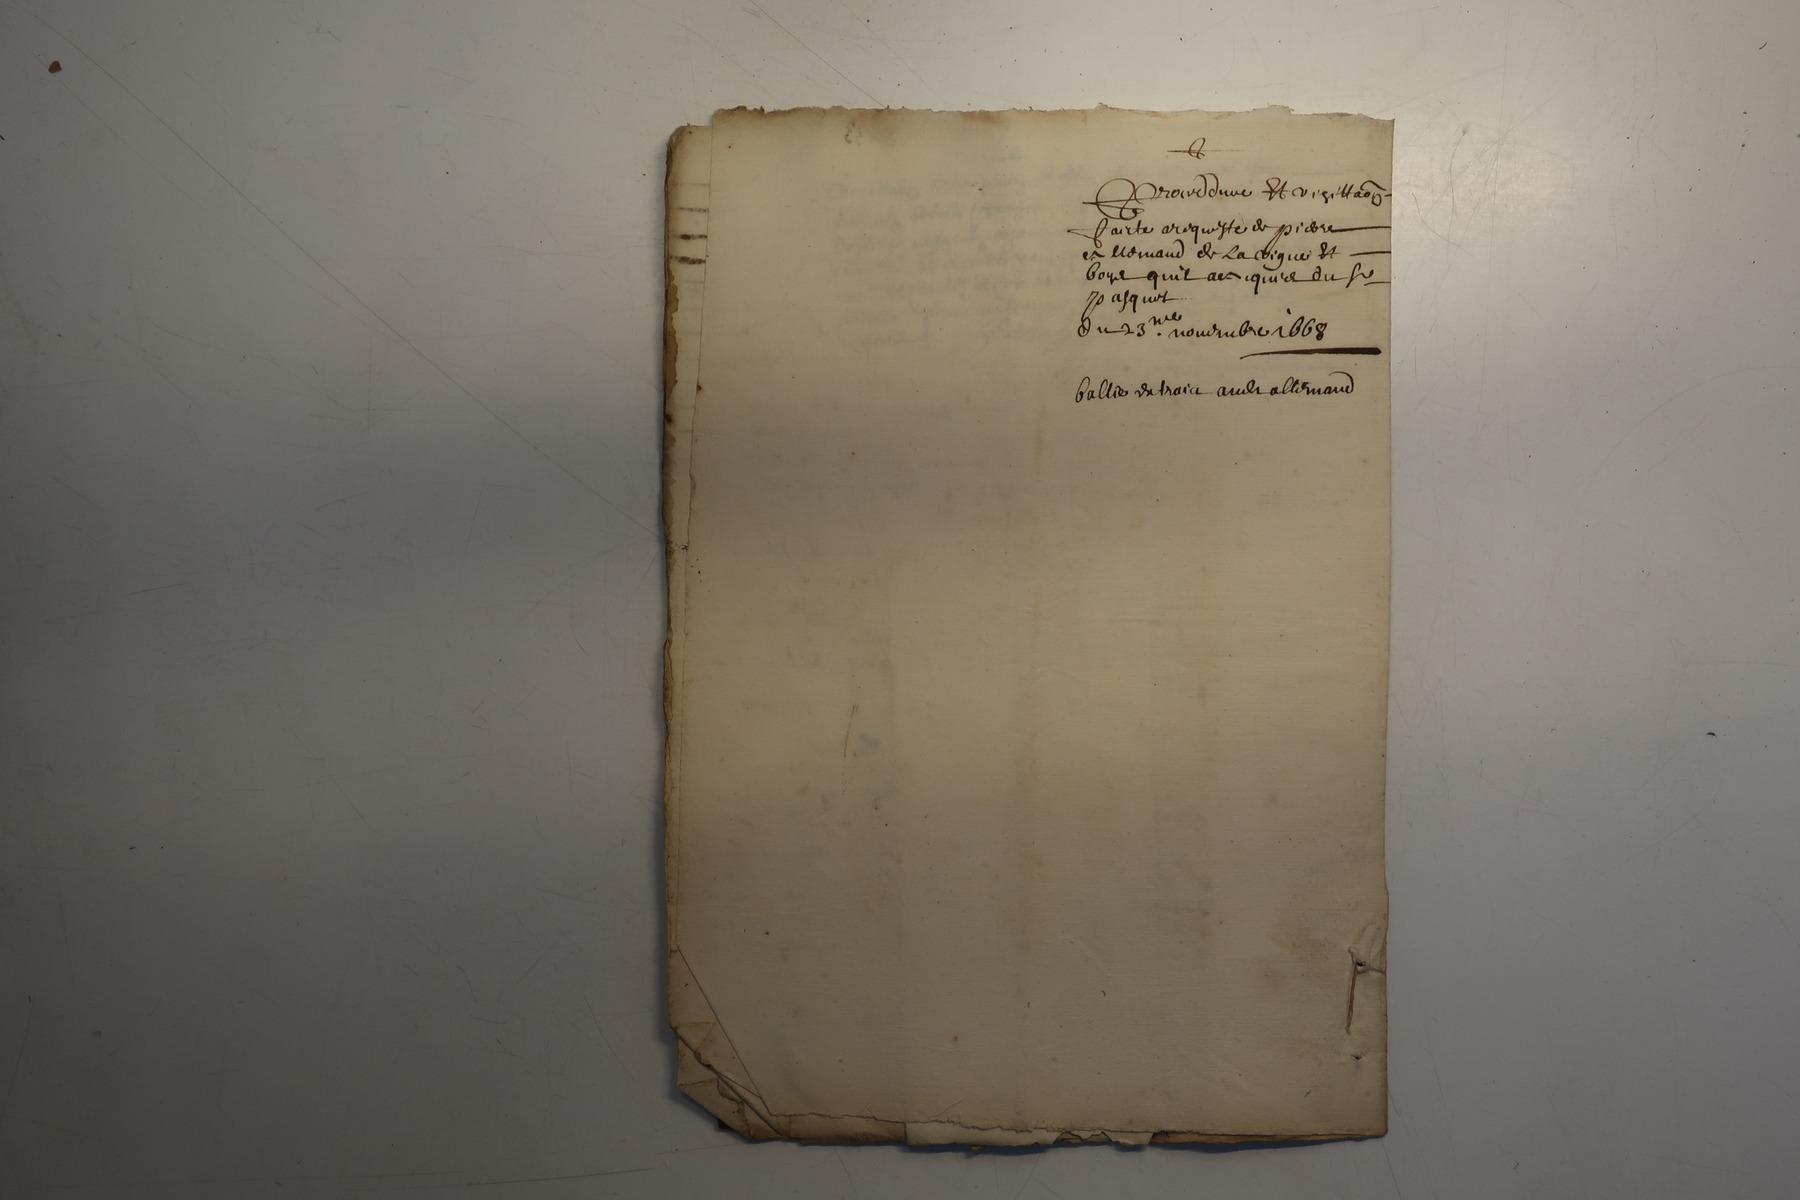 Proceddure Et vizittaon
Faicte a requeste de pierre
allemand de La vigne Et
boys quil a acquise du sr
Pasquet
du 23me novembre 1668
ballié extraict audt allemand